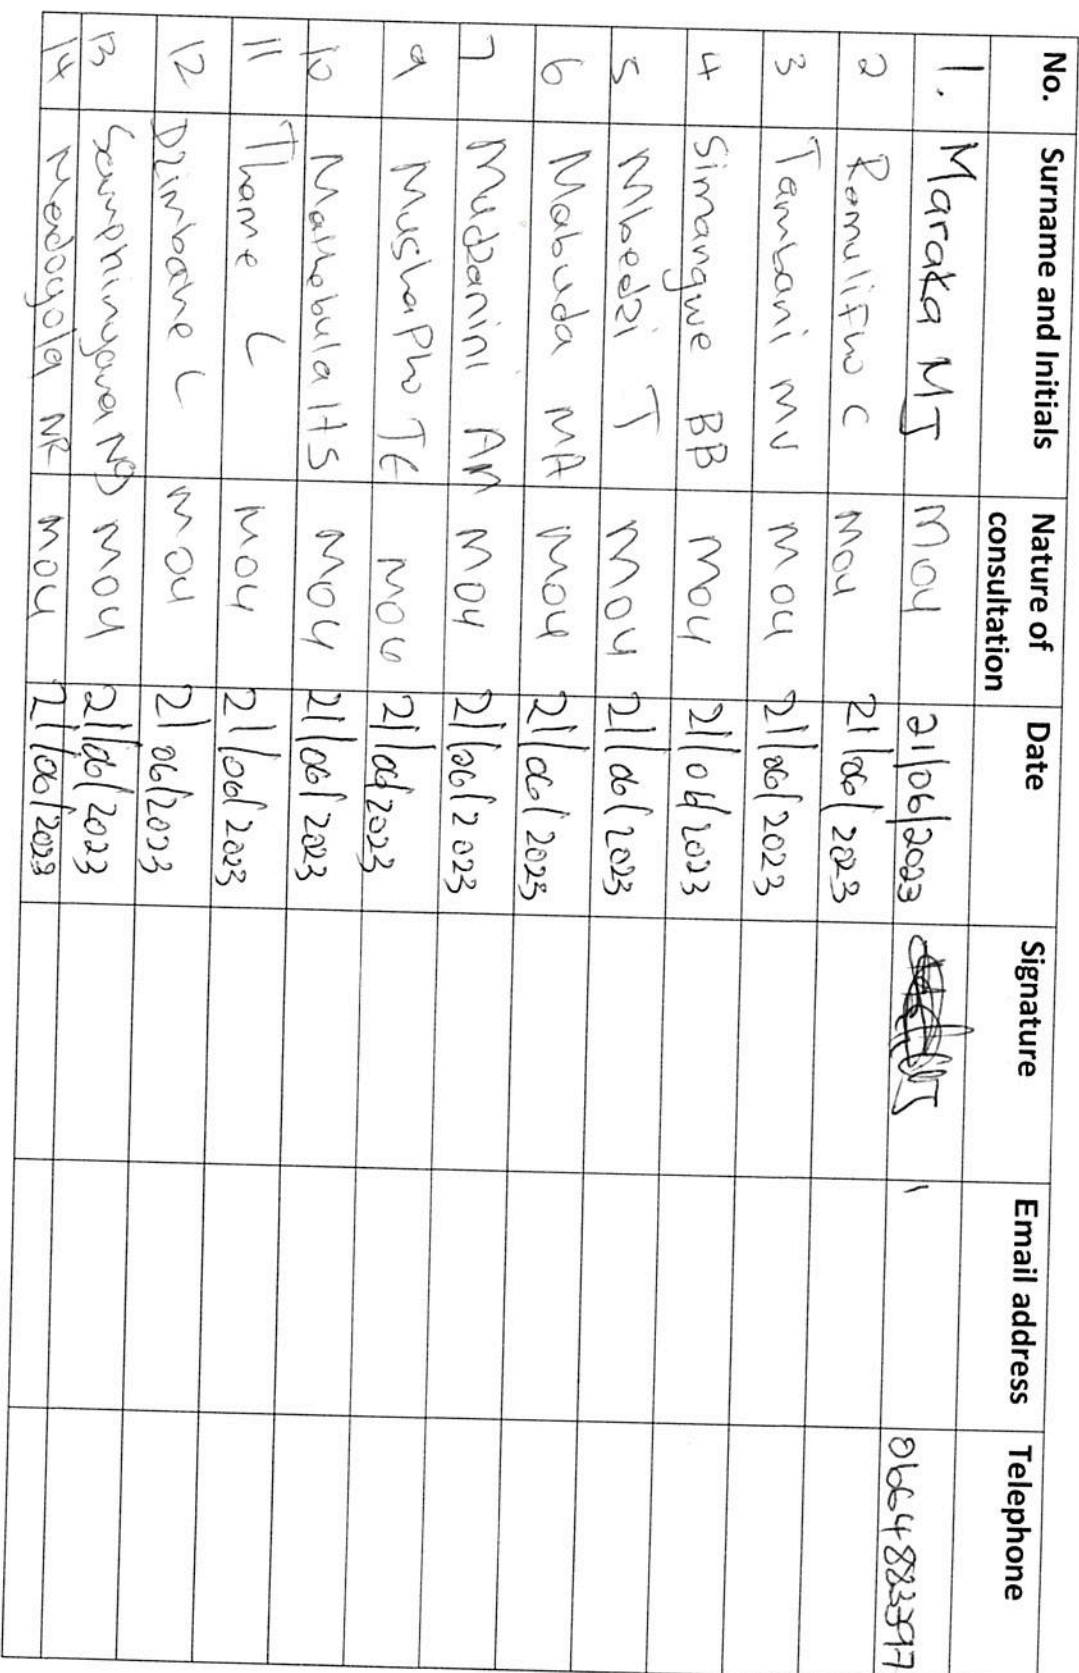 No. Surname and Initials Nature of consultation Date Signature Email address Telephone
1. Maraka MJ MOU 21/06/2023 0664883397
2 Ramulifho C MOU 21/06/2023
3 Tambani MV MOU 21/06/2023
4 Simangwe BB MOU 21/06/2023
5 Mbedzi T MOU 21/06/2023
6 Mabuda MA MOU 21/06/2023
7 Mudzanini AM MOU 21/06/2023
9 MushaPho TE MOU 21/06/2023
10 Mathebula HS MOU 21/06/2023
11 Thame C MOU 21/06/2023
12 Dzimbane C MOU 21/06/2023
13 ND MOU 21/06/2023
14 NR MOU 21/06/2023